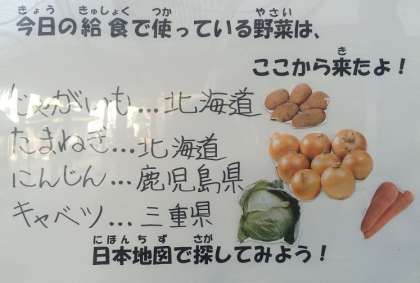 今日の給食で使っている野菜は、
ここから来たよ！
じゃがいも…北海道
たまねぎ…北海道
にんじん…鹿児島県
キャベツ…三重県
日本地図で探してみよう！